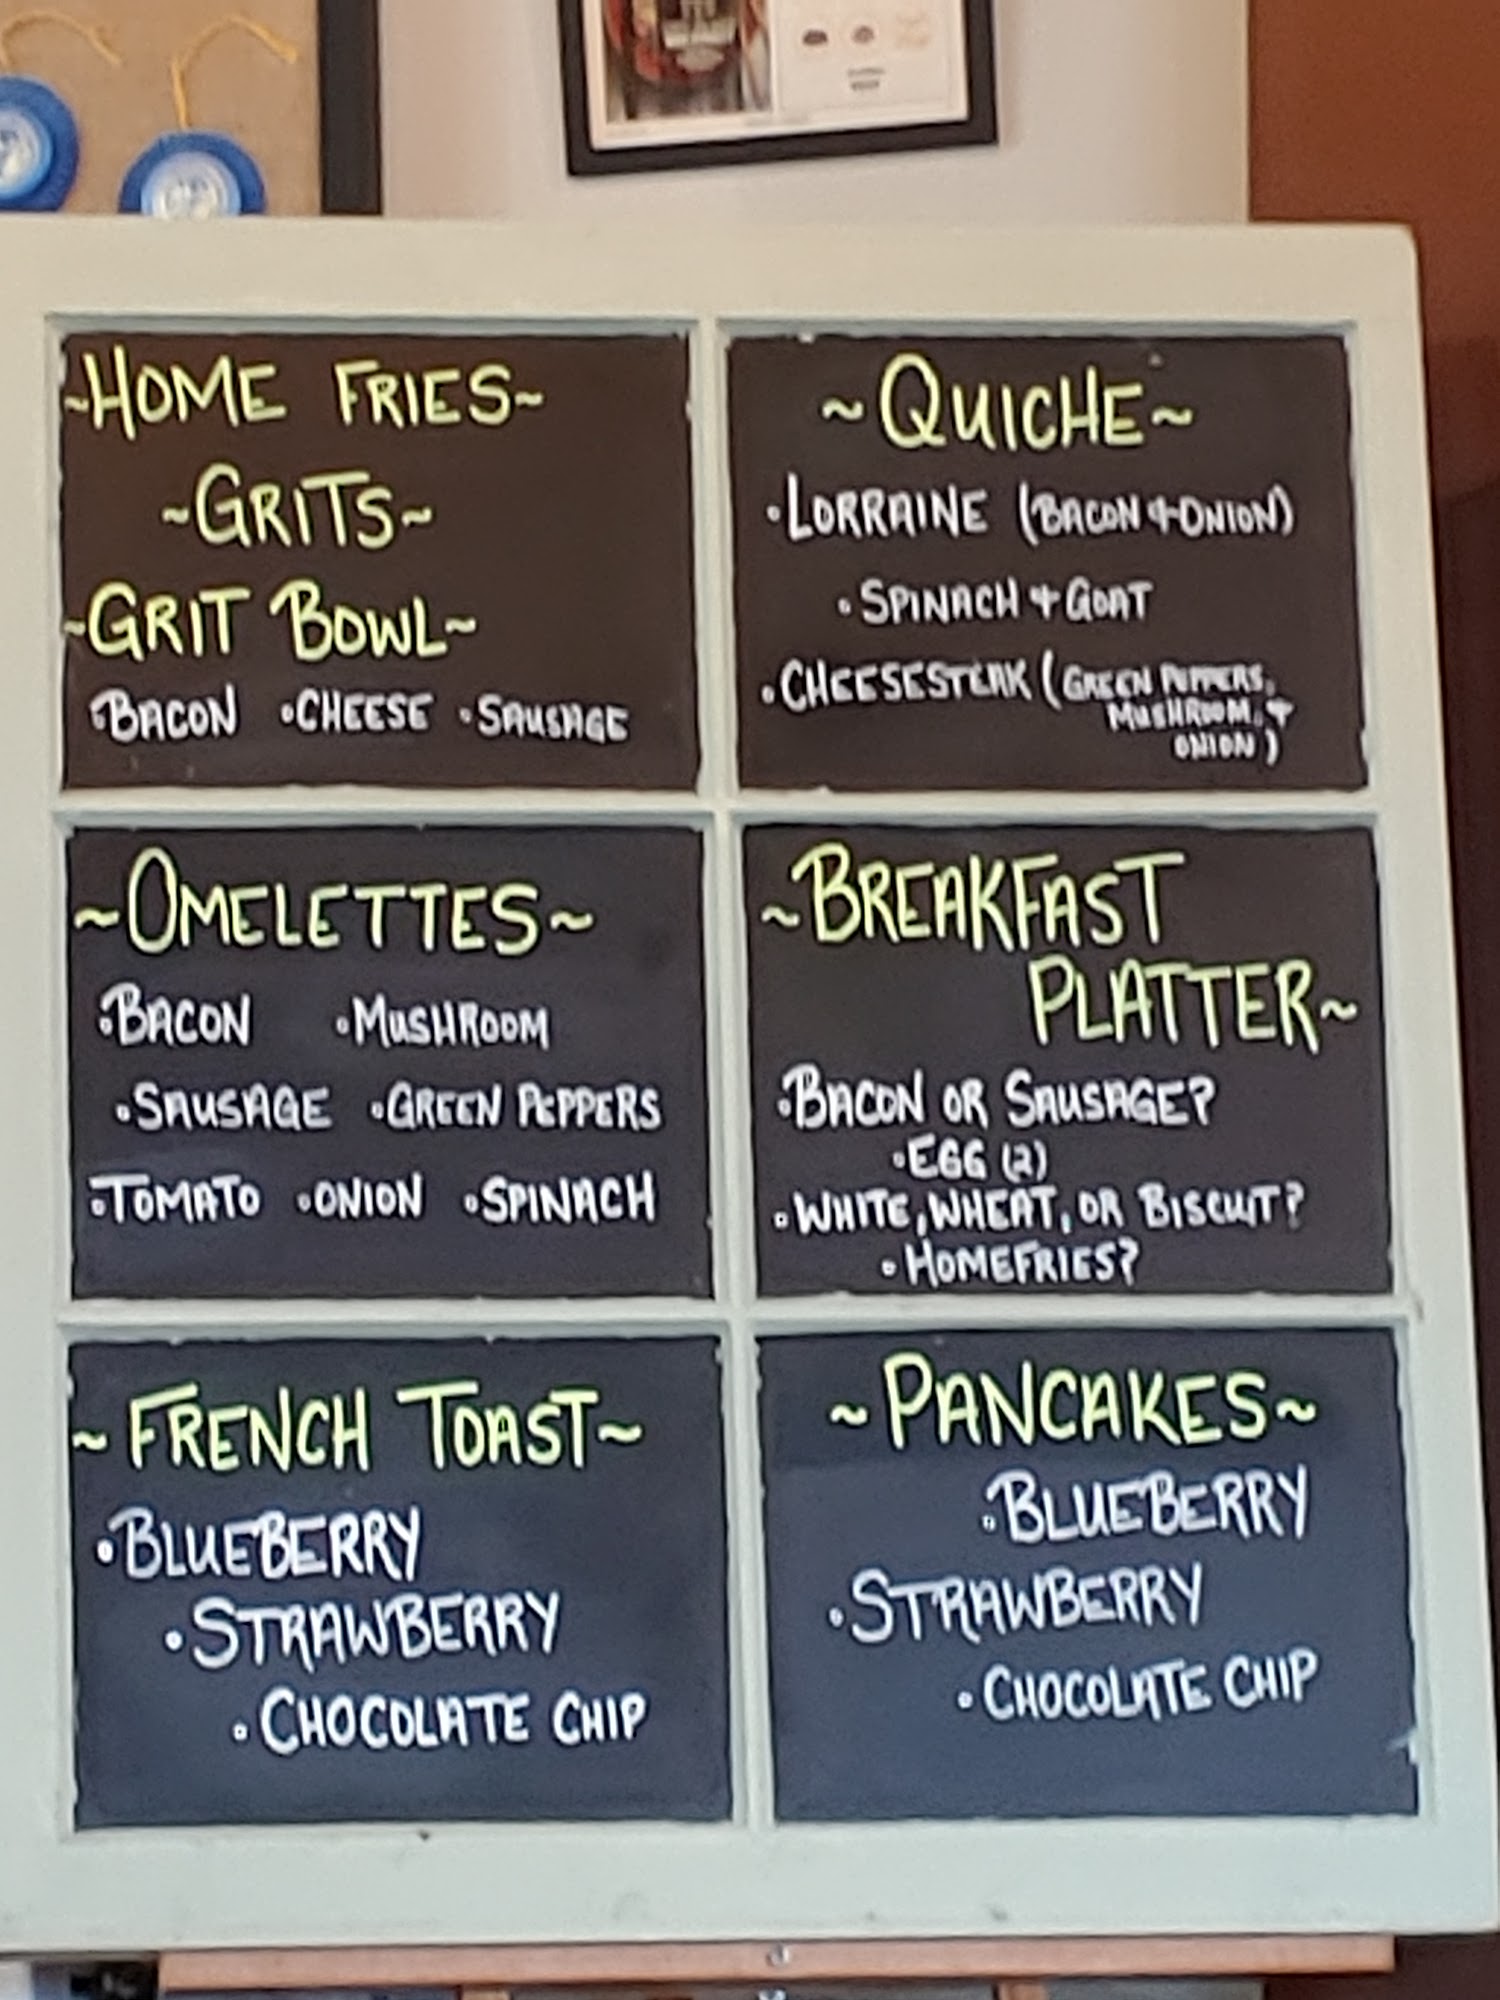 ~HOME FRIES~
~GRITS~
~GRIT BOWL~
•BACON •CHEESE •SAUSAGE
~QUICHE~
•LORRAINE (BACON & ONION)
•SPINACH & GOAT
•CHEESESTEAK (GREEN PEPPERS,
MUSHROOM, &
ONION)
~OMELETTES~
•BACON •MUSHROOM
•SAUSAGE •GREEN PEPPERS
•TOMATO •ONION •SPINACH
~BREAKFAST
PLATTER~
•BACON OR SAUSAGE?
•EGG (2)
•WHITE, WHEAT, OR BISCUIT?
•HOMEFRIES?
~FRENCH TOAST~
•BLUEBERRY
•STRAWBERRY
•CHOCOLATE CHIP
~PANCAKES~
•BLUEBERRY
•STRAWBERRY
•CHOCOLATE CHIP